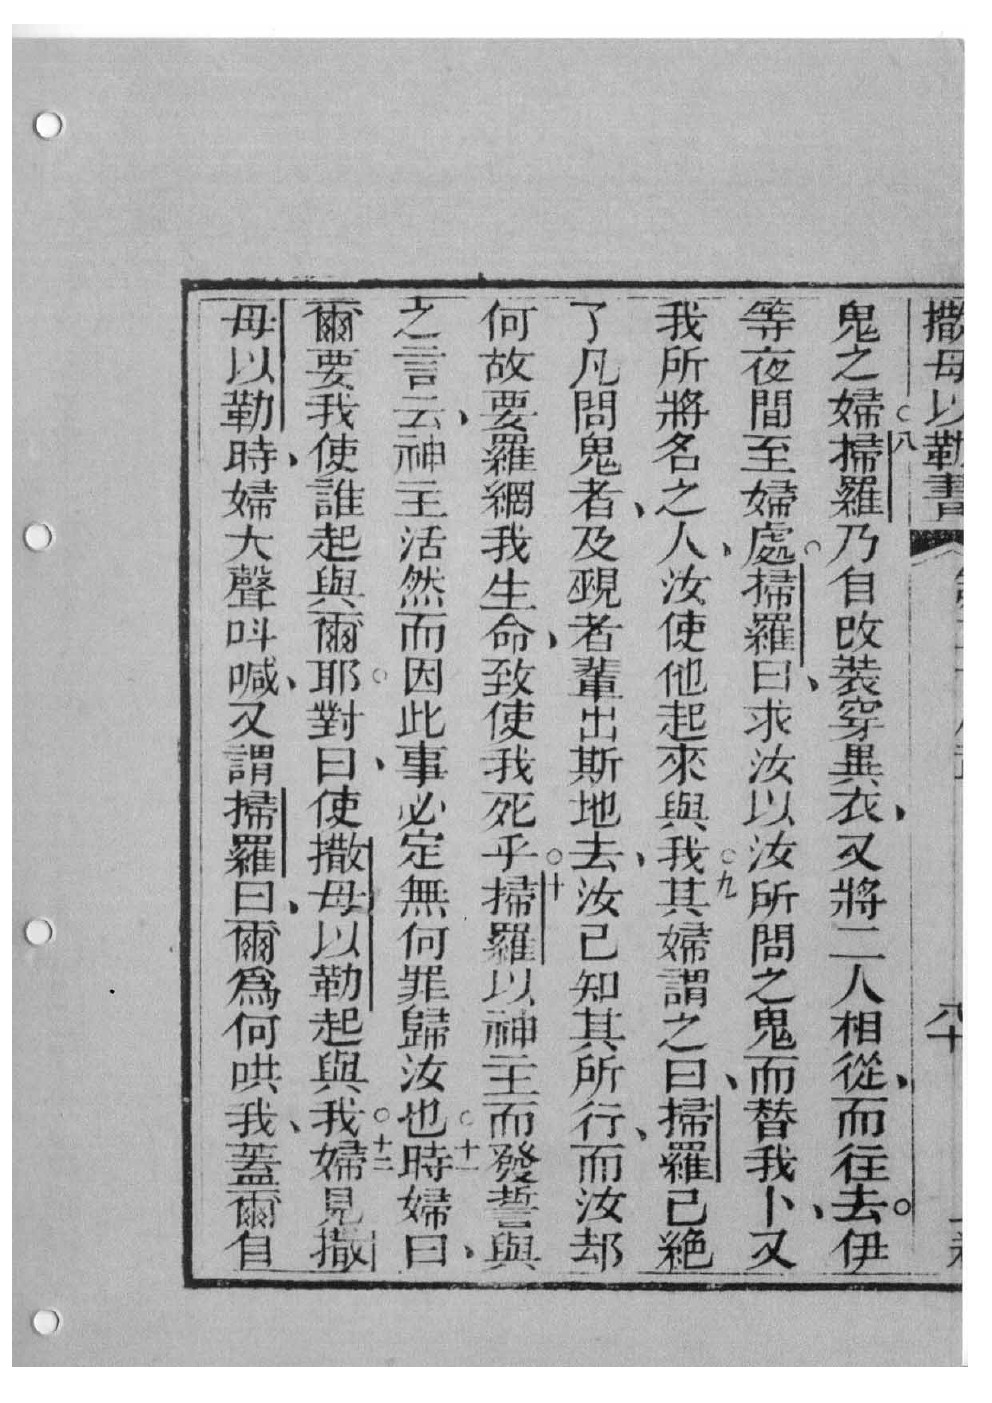 撒母以勒書 八十
鬼之婦○八掃羅乃自改装穿異衣、又將二人相從、而往去。伊
等夜間至婦處。掃羅曰、求汝以汝所問之鬼而替我卜、又
我所將名之人、汝使他起來與我○九其婦謂之曰、掃羅已絶
了凡問鬼者、及覡者輩出斯地去、汝已知其所行、而汝却
何故要羅網我生命、致使我死乎○十掃羅以神主而發誓與
之言云、神主活然而因此事必定無何罪歸汝也○十一時婦曰、
爾要我使誰起與爾耶○對曰、使撒母以勒起與我○十二婦見撒
母以勒時、婦大聲呌喊、又謂掃羅曰、爾爲何哄我、蓋爾自